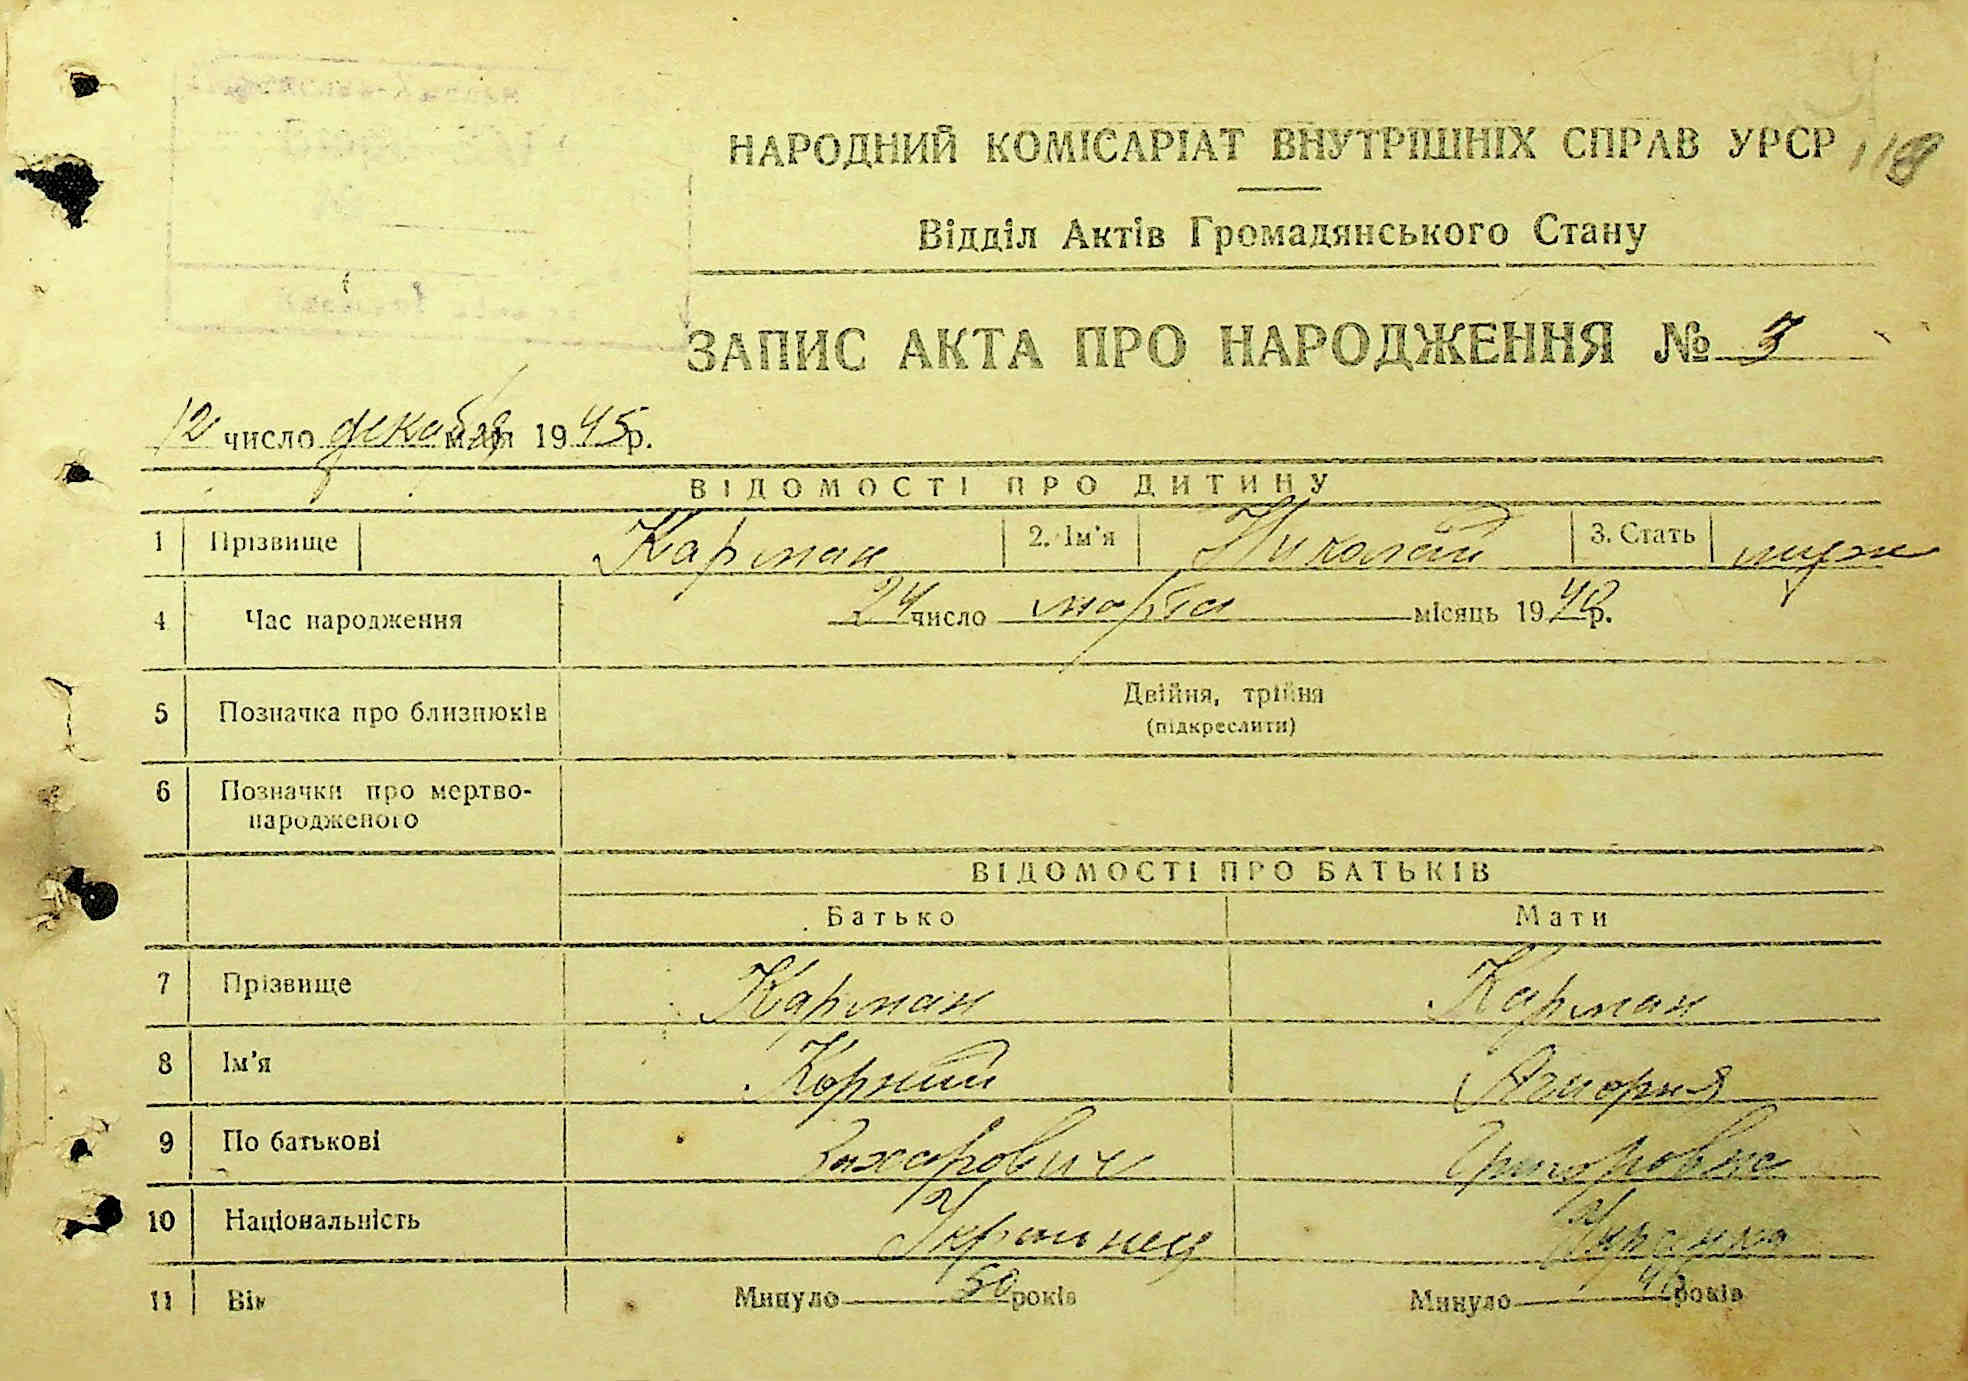 118
НАРОДНИЙ КОМІСАРІАТ ВНУТРІШНІХ СПРАВ УРСР
Відділ Актів Громадянського Стану
ЗАПИС АКТА ПРО НАРОДЖЕННЯ № 3
12 число декабря м-ця 1945 р.
ВІДОМОСТІ ПРО ДИТИНУ
1 Прізвище Карман 2. Ім'я Николай 3. Стать муж
4 Час народження 24 число марта місяць 1940 р.
5 Позначка про близнюків Двійня, трійня
(підкреслити)
6 Позначки про мертво-
народженого
ВІДОМОСТІ ПРО БАТЬКІВ
Батько Мати
7 Прізвище Карман Карман
8 Ім'я Корний
9 По батькові Захарович Григоровна
10 Національність Украинец Украинка
11 Вік Минуло 50 років Минуло років